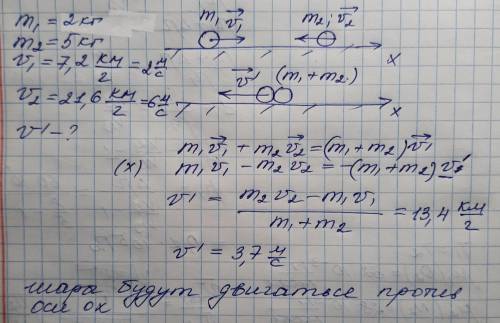 m₁ = 2 кг
m₂ = 5 кг
v₁ = 7,2 км/г = 2 м/с
v₂ = 21,6 км/г = 6 м/с
v' - ?
m₁ v⃗₁ m₂; v⃗₂
x
v⃗' (m₁+m₂)
x
m₁v⃗₁ + m₂v⃗₂ = (m₁+m₂)v⃗'
(x) m₁v₁ - m₂v₂ = -(m₁+m₂)v'
v' = (m₂v₂ - m₁v₁)/(m₁+m₂) = 13,4 км/г
v' = 3,7 м/с
шара будут двигаться против
оси ох